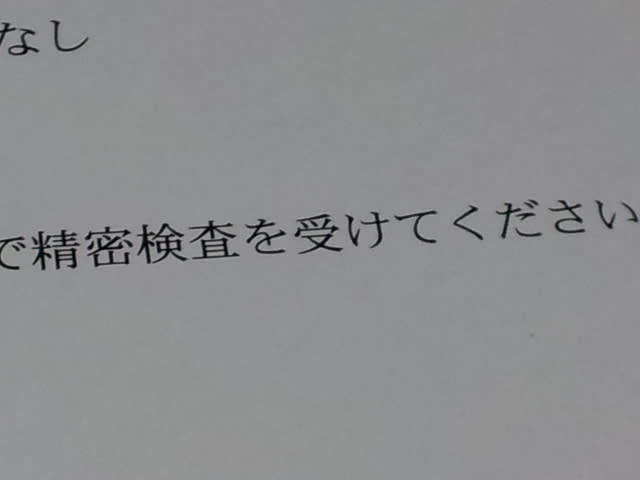 なし
で精密検査を受けてください